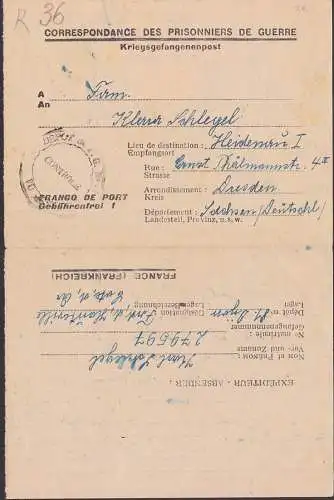 R 36
CORRESPONDANCE DES PRISONNIERS DE GUERRE
Kriegsgefangenenpost
A Firm.
An
Klara Schlegel
Lieu de destination: Heidenau I
Empfangsort
Rue: Ernst Thälmannstr. 4 II
Strasse
Arrondissement: Dresden
Kreis
Département: Sachsen (Deutschl)
Landesteil, Provinz, u.s.w.
DEPOT
CONTROLE
FRANCO DE PORT
Gebührenfrei !
FRANCE (FRANKREICH)
Dépôt n°
Lager
Désignation
Lagerbezeichnung
Fort d. Hauteville
No matricule 279597
Gefangenennummer
Nom et Prénom: Karl Schlegel
Vor- und Zuname
EXPEDITEUR - ABSENDER: